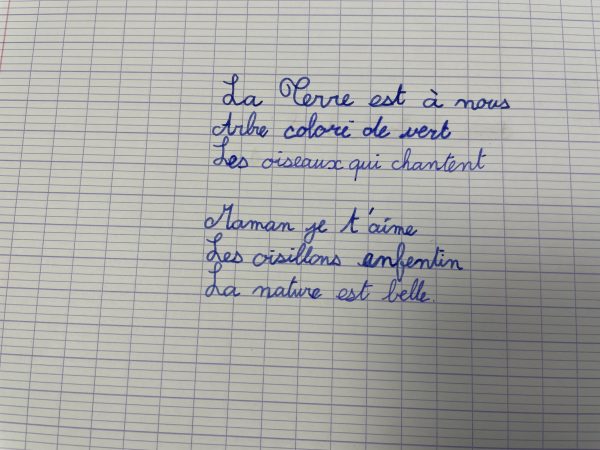 La Terre est à nous
Arbre colori de vert
Les oiseaux qui chantent
Maman je t'aime
Les oisillons enfentin
La nature est belle.